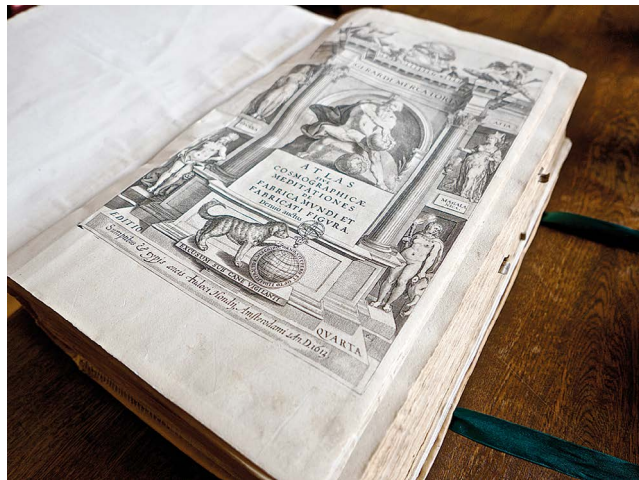 GERARDI MERCATORIS
ATLAS
SIVE
COSMOGRAPHICÆ
MEDITATIONES
DE
FABRICA MVNDI ET
FABRICATI FIGVRA.
Denuò auctus
EDITIO
QVARTA
EXCUSUM SUB CANE VIGILANTI
Sumptibus & typis æneis Iudoci Hondij, Amsterodami An. D. 1612